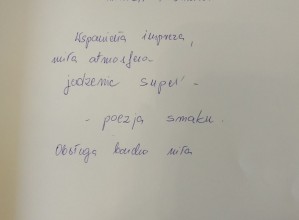 Wspaniała impreza,
miła atmosfera
jedzenie super -
- poezja smaku.
Obsługa bardzo miła